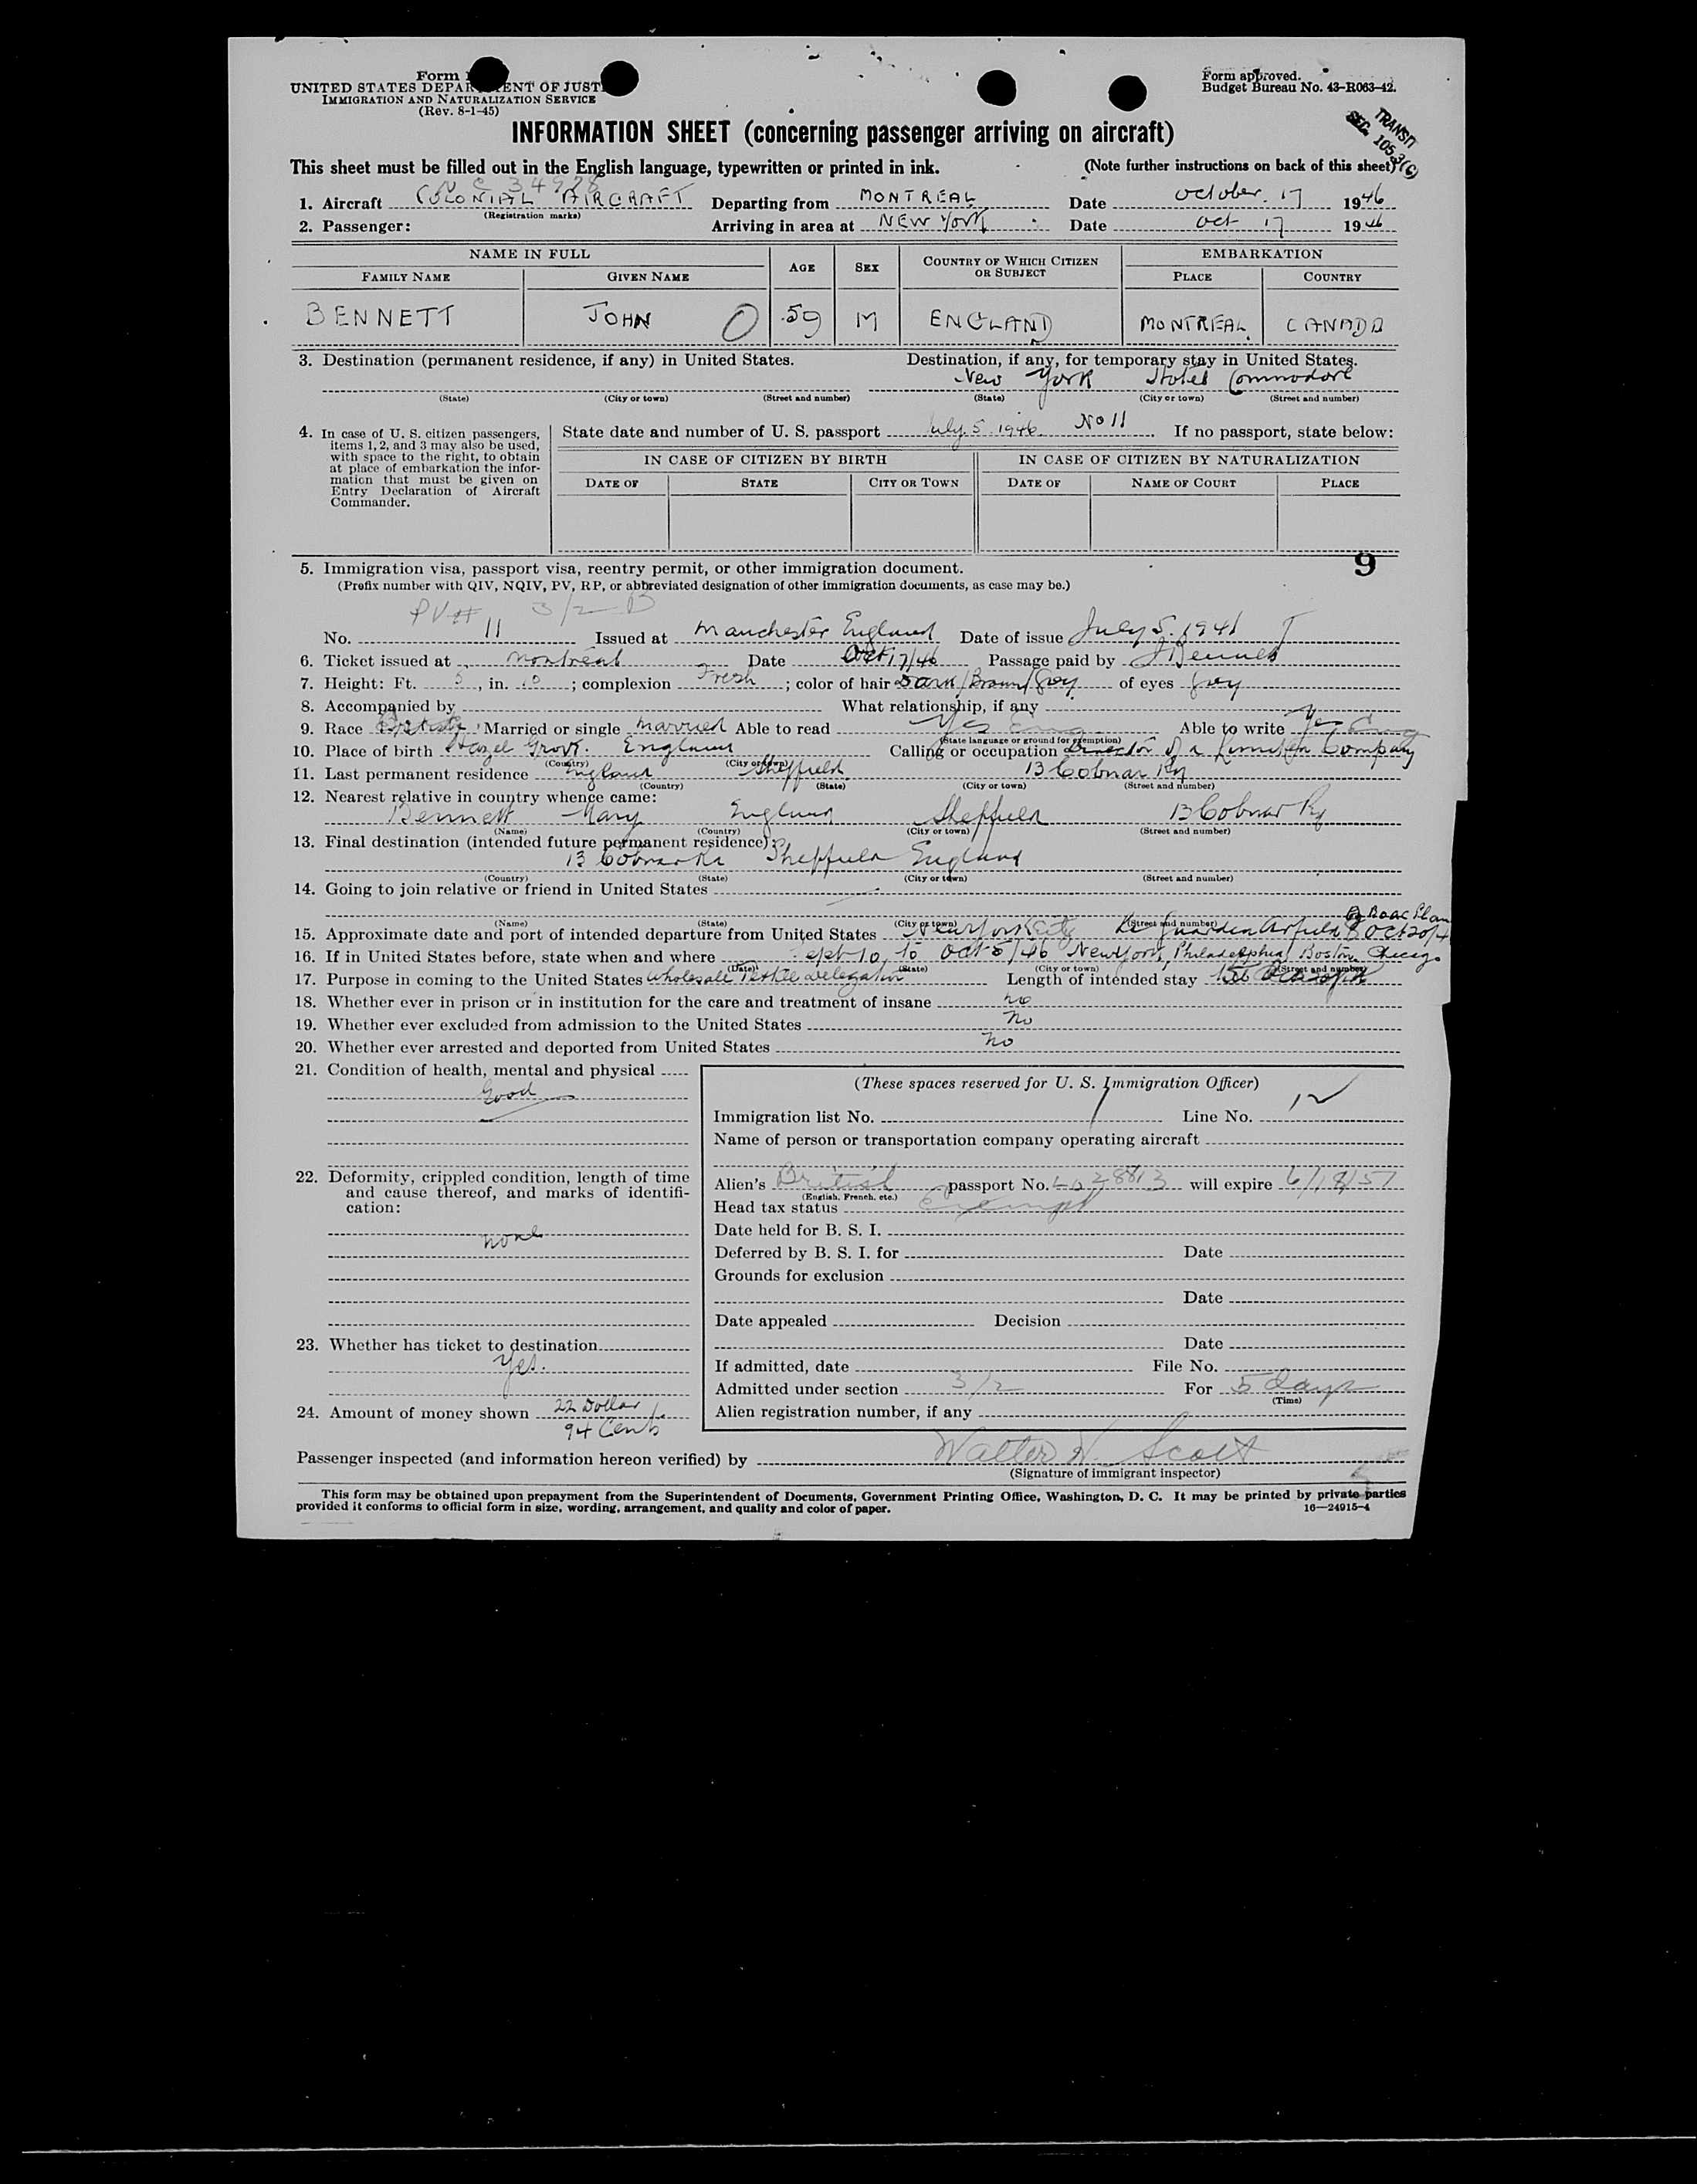 Form
UNITED STATES DEPARTMENT OF JUST
IMMIGRATION AND NATURALIZATION SERVICE
(Rev. 8-1-45)
Form approved.
Budget Bureau No. 43-R063-42.
TRANSIT
SEC. 1053(6)
INFORMATION SHEET (concerning passenger arriving on aircraft)
This sheet must be filled out in the English language, typewritten or printed in ink. (Note further instructions on back of this sheet)
1. Aircraft COLONIAL AIRCRAFT Departing from MONTREAL Date October. 17 1946
(Registration marks)
2. Passenger: Arriving in area at NEW YORK Date Oct 17 1946
NAME IN FULL AGE SEX COUNTRY OF WHICH CITIZEN OR SUBJECT EMBARKATION
FAMILY NAME GIVEN NAME PLACE COUNTRY
BENNETT JOHN 0 59 M ENGLAND MONTREAL CANADA
3. Destination (permanent residence, if any) in United States. Destination, if any, for temporary stay in United States.
New York Hotel Commodore
(State) (City or town) (Street and number) (State) (City or town) (Street and number)
4. In case of U. S. citizen passengers, items 1, 2, and 3 may also be used, with space to the right, to obtain at place of embarkation the information that must be given on Entry Declaration of Aircraft Commander.
State date and number of U. S. passport July. 5. 1946 No 11 If no passport, state below:
IN CASE OF CITIZEN BY BIRTH IN CASE OF CITIZEN BY NATURALIZATION
DATE OF STATE CITY OR TOWN DATE OF NAME OF COURT PLACE
9
5. Immigration visa, passport visa, reentry permit, or other immigration document.
(Prefix number with QIV, NQIV, PV, RP, or abbreviated designation of other immigration documents, as case may be.)
PV# 3/2 B
No. 11 Issued at Manchester England Date of issue July 5. 1946
6. Ticket issued at Montreal Date Oct 17/46 Passage paid by J Bennett
7. Height: Ft. 5, in. 10; complexion Fresh; color of hair Dark/Brown/Grey of eyes Grey
8. Accompanied by What relationship, if any
9. Race British Married or single Married Able to read Yes Eng Able to write Yes Eng
(State language or ground for exemption)
10. Place of birth Hazel Grove. England Calling or occupation Director of a Limited Company
(Country) (City or town)
11. Last permanent residence England Sheffield 13 Cobnar Rd
(Country) (State) (City or town) (Street and number)
12. Nearest relative in country whence came:
Bennett Mary England Sheffield 13 Cobnar Rd
(Name) (Country) (City or town) (Street and number)
13. Final destination (intended future permanent residence):
13 Cobnar Rd Sheffield England
(Country) (State) (City or town) (Street and number)
14. Going to join relative or friend in United States
(Name) (State) (City or town) (Street and number)
15. Approximate date and port of intended departure from United States New York City La Guardia Airfield Oct 20/4
16. If in United States before, state when and where Sept 10 to Oct 5/46 New York, Philadelphia, Boston, Chicago
(Date) (State) (City or town) (Street and number)
17. Purpose in coming to the United States Wholesale Textile Delegation Length of intended stay
18. Whether ever in prison or in institution for the care and treatment of insane no
19. Whether ever excluded from admission to the United States No
20. Whether ever arrested and deported from United States No
21. Condition of health, mental and physical
Good
22. Deformity, crippled condition, length of time and cause thereof, and marks of identification:
None
23. Whether has ticket to destination
Yes.
24. Amount of money shown 22 Dollar
94 Cents
(These spaces reserved for U. S. Immigration Officer)
Immigration list No. 1 Line No. 12
Name of person or transportation company operating aircraft
Alien's British passport No. will expire 6/18/51
(English, French, etc.)
Head tax status Exempt
Date held for B. S. I.
Deferred by B. S. I. for Date
Grounds for exclusion
Date
Date appealed Decision
Date
If admitted, date File No.
Admitted under section 3/2 For 5 days
(Time)
Alien registration number, if any
Passenger inspected (and information hereon verified) by Walter W. Scott
(Signature of immigrant inspector)
This form may be obtained upon prepayment from the Superintendent of Documents, Government Printing Office, Washington, D. C. It may be printed by private parties
provided it conforms to official form in size, wording, arrangement, and quality and color of paper. 16—24915-4